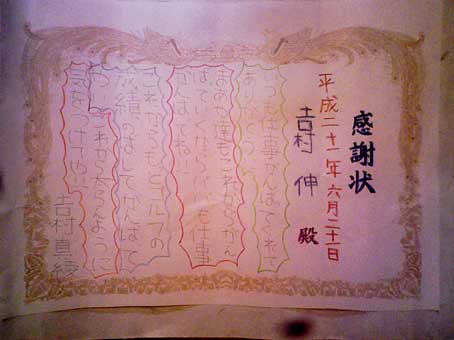 感謝状
平成二十一年六月二十一日
吉村 伸 殿
いつもお仕事がんばてくれて
ありがとう
まあや達もこれからがん
ばていくからパパも仕事
がんばてね!
これからもゴルフの
成績のばしてがんばて
わたしこれから太らんように
気をつけてや!
吉村真綾